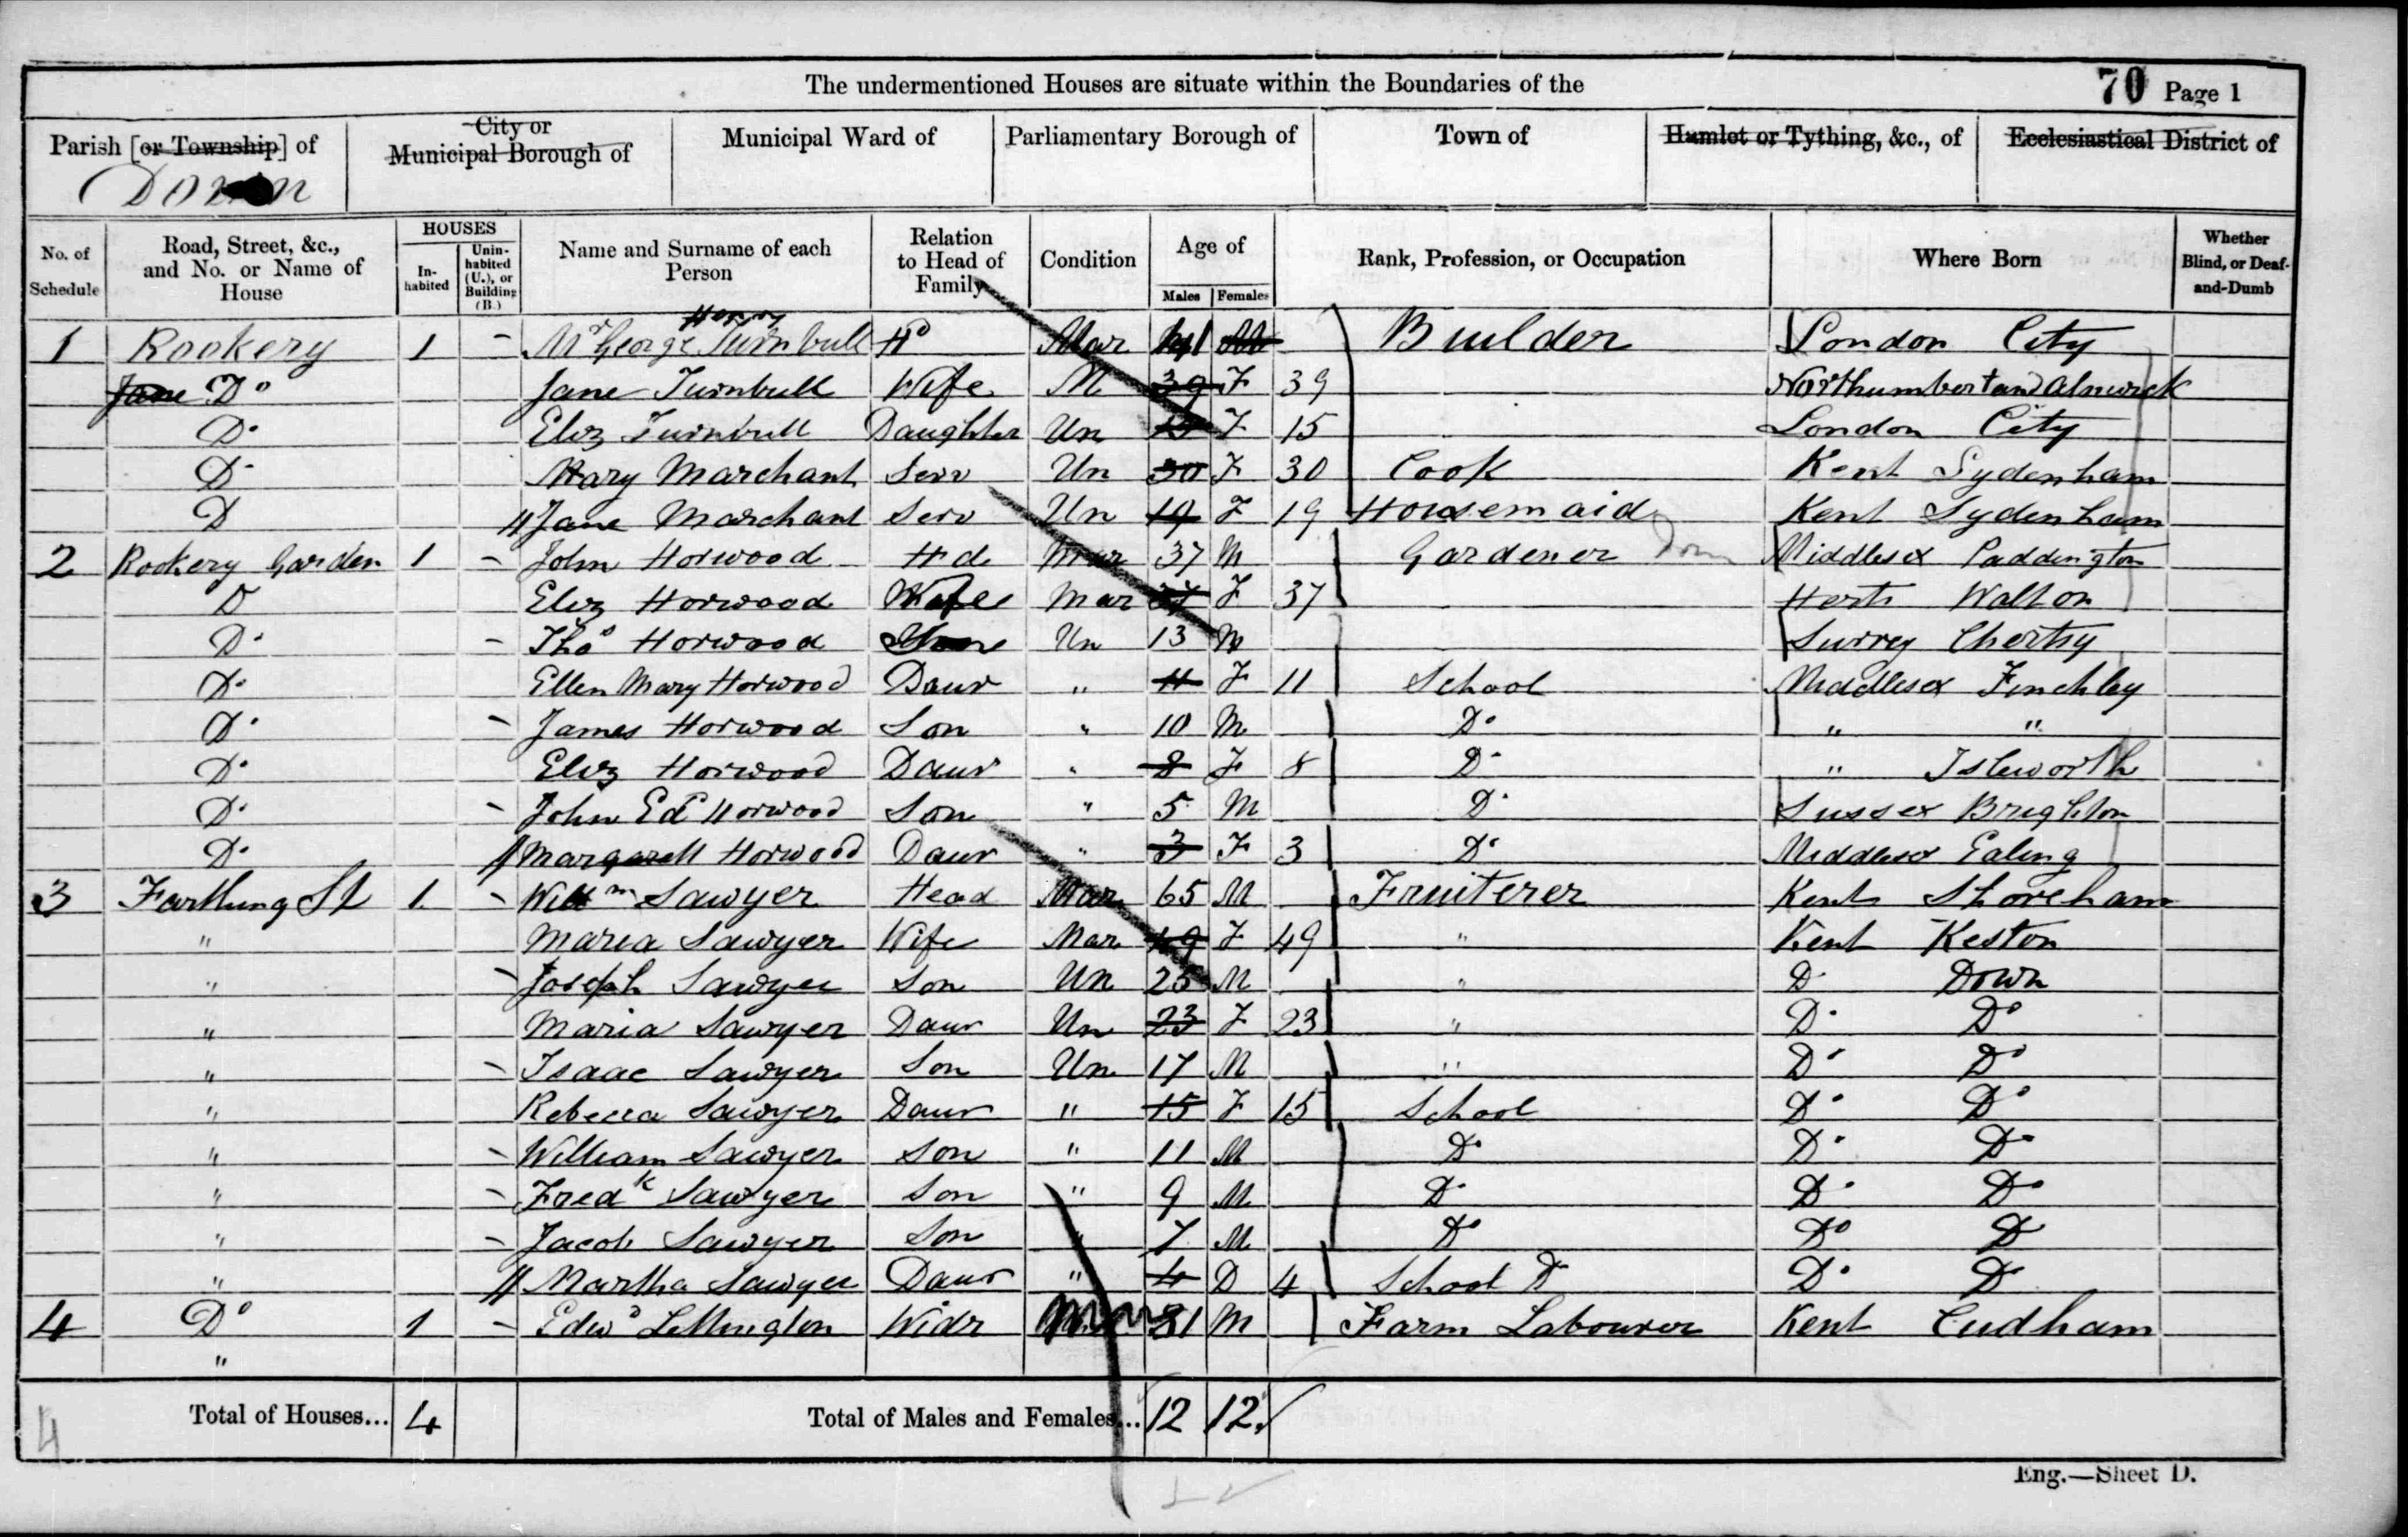 The undermentioned Houses are situate within the Boundaries of the
70 Page 1
Parish [or Township] of
City or Municipal Borough of
Municipal Ward of
Parliamentary Borough of
Town of
Hamlet or Tything, &c., of
Ecclesiastical District of
No. of Schedule
Road, Street, &c., and No. or Name of House
HOUSES
In-habited
Unin-habited (U.), or Building (B.)
Name and Surname of each Person
Relation to Head of Family
Condition
Age of
Males Females
Rank, Profession, or Occupation
Where Born
Whether Blind, or Deaf-and-Dumb
1 Rookery 1 - Mr George Henry Turnbull Hd Mar 41 M Builder London City
Jane Do Jane Turnbull Wife M 39 F 39 Northumberland Alnwick
Do Eliz Turnbull Daughter Un 15 F 15 London City
Do Mary Marchant Serv Un 30 F 30 Cook Kent Sydenham
D // Jane Marchant Serv Un 19 F 19 Housemaid Kent Sydenham
2 Rookery Garden 1 - John Horwood Hd Mar 37 M Gardener Dom Middlesex Paddington
D Eliz Horwood Wife Mar 37 F 37 Herts Walton
Do - Thos Horwood Un 13 M Surrey Chertsy
Do Ellen Mary Horwood Daur " 11 F 11 School Middlesex Finchley
Do - James Horwood Son " 10 M Do " "
Do Eliz Horwood Daur " 8 F 8 Do " Isleworth
Do - John Ed Horwood Son " 5 M Do Sussex Brighton
Do // Margarett Horwood Daur " 3 F 3 Do Middlesex Ealing
3 Farthing St 1 - Willm Sawyer Head Mar 65 M Fruiterer Kent Shoreham
" Maria Sawyer Wife Mar 49 F 49 " Kent Keston
" - Joseph Sawyer Son Un 25 M " D Down
" Maria Sawyer Daur Un 23 F 23 " Do Do
" - Isaac Sawyer Son Un 17 M " Do Do
" Rebecca Sawyer Daur " 15 F 15 School Do Do
" - William Sawyer Son " 11 M Do Do Do
" - Fredk Sawyer Son " 9 M Do Do Do
" - Jacob Sawyer Son " 7 M Do Do D
" // Martha Sawyer Daur " 4 D 4 School D Do D
4 Do 1 - Edwd Lettington Widr M Farm Labourer Kent Cudham
"
Total of Houses... 4
Total of Males and Females... 12 12
4
Eng.—Sheet D.